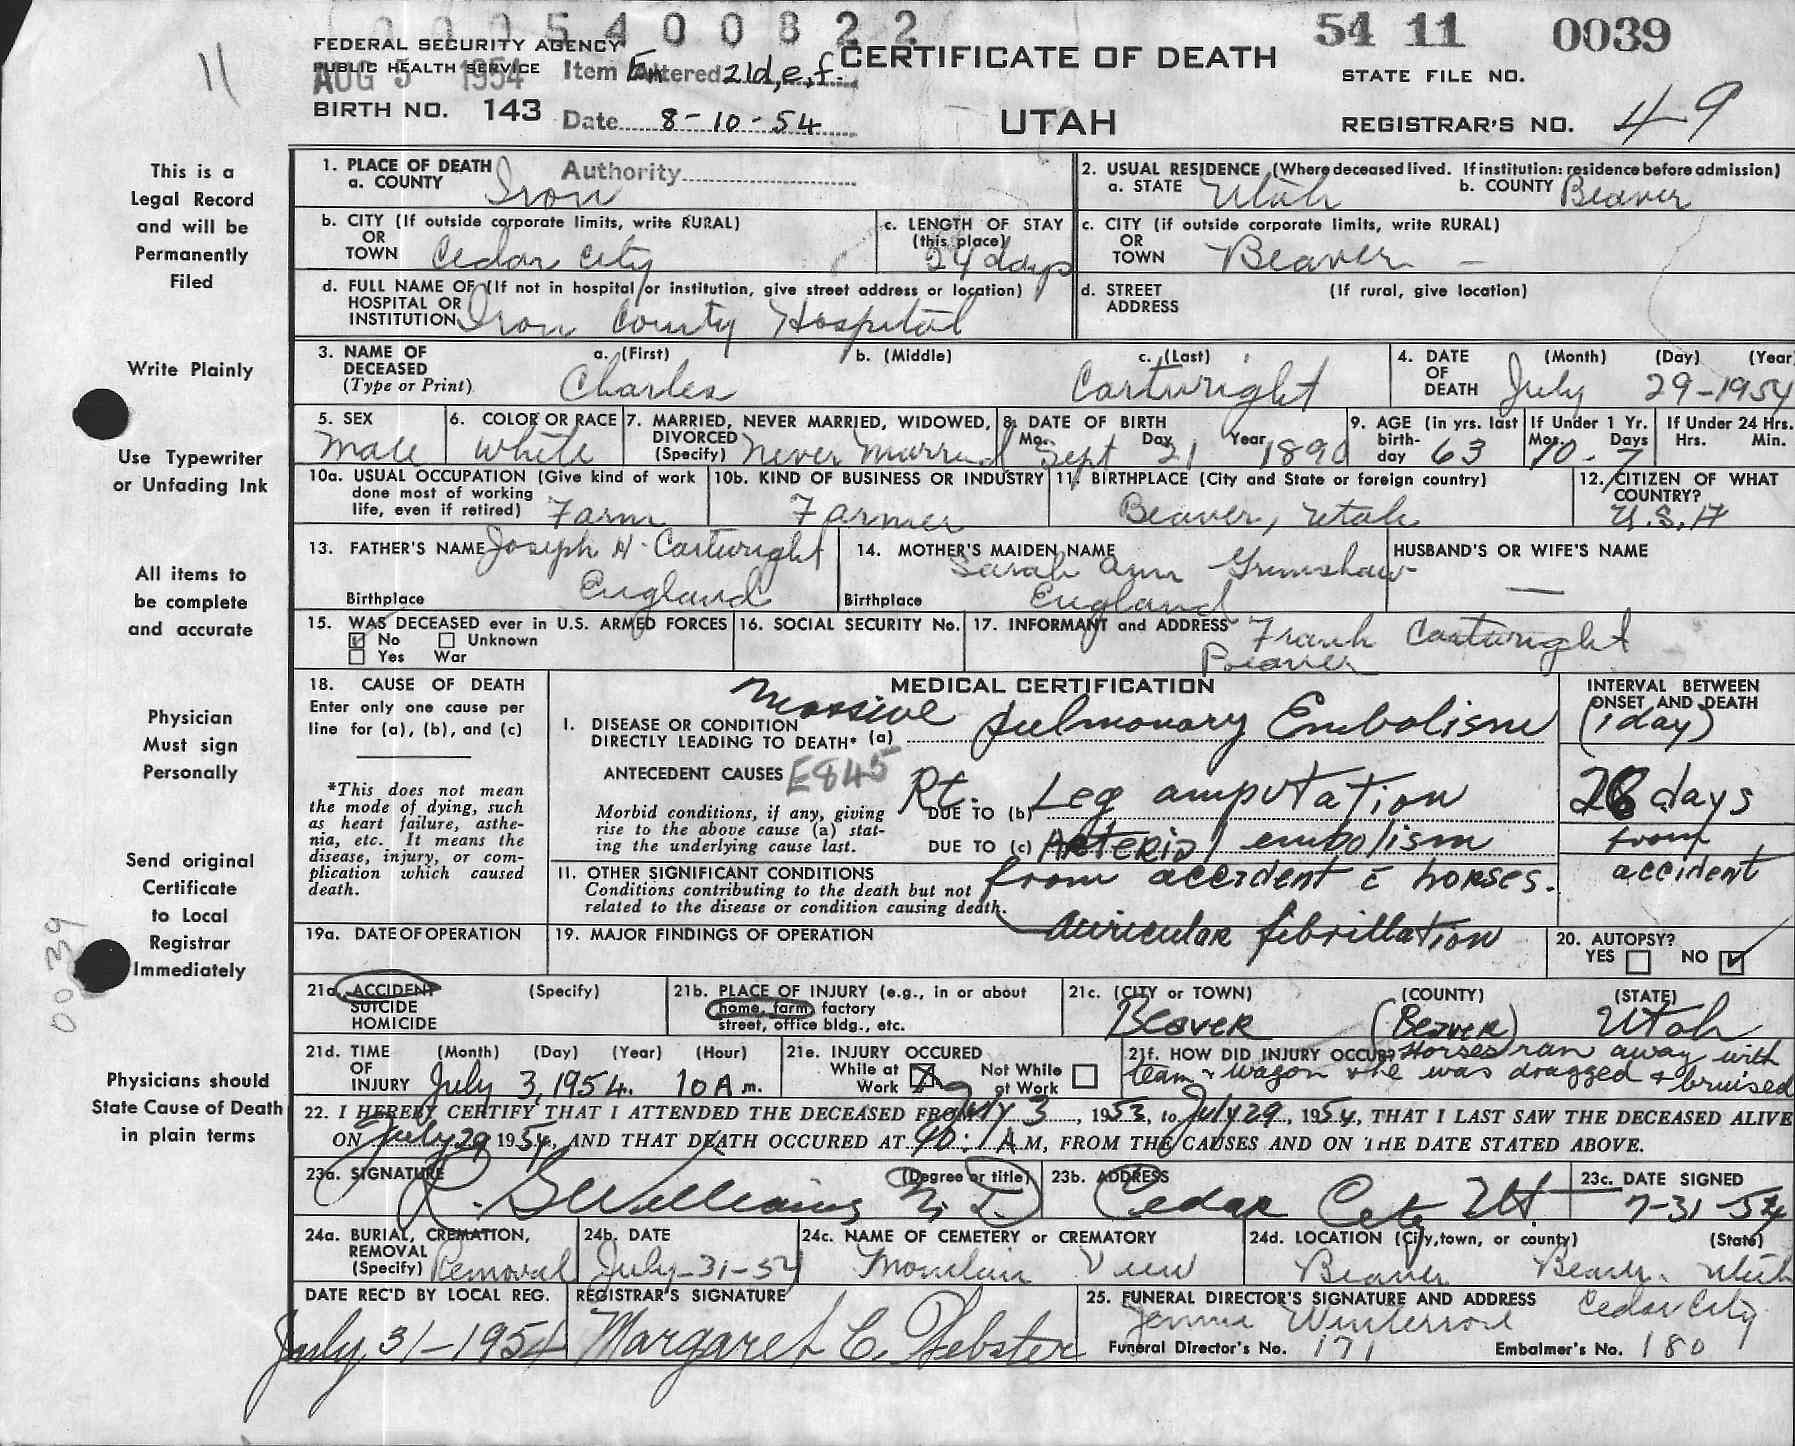 0 0 0 5 4 0 0 8 2 2
54 11 0039
FEDERAL SECURITY AGENCY
PUBLIC HEALTH SERVICE
AUG 5 1954
Item Entered 21d,e,f.
CERTIFICATE OF DEATH
STATE FILE NO.
11
BIRTH NO. 143
Date 8-10-54
UTAH
REGISTRAR'S NO. 49
This is a
Legal Record
and will be
Permanently
Filed
Write Plainly
Use Typewriter
or Unfading Ink
All items to
be complete
and accurate
Physician
Must sign
Personally
Send original
Certificate
to Local
Registrar
Immediately
0039
Physicians should
State Cause of Death
in plain terms
1. PLACE OF DEATH
a. COUNTY Iron
Authority
2. USUAL RESIDENCE (Where deceased lived. If institution: residence before admission)
a. STATE Utah b. COUNTY Beaver
b. CITY (If outside corporate limits, write RURAL)
OR
TOWN Cedar City
c. LENGTH OF STAY
(this place)
24 days
c. CITY (if outside corporate limits, write RURAL)
OR
TOWN Beaver -
d. FULL NAME OF (If not in hospital or institution, give street address or location)
HOSPITAL OR
INSTITUTION Iron County Hospital
d. STREET (If rural, give location)
ADDRESS
3. NAME OF DECEASED (Type or Print)
a. (First) b. (Middle) c. (Last)
Charles Cartwright
4. DATE OF DEATH (Month) (Day) (Year
July 29-1954
5. SEX
male
6. COLOR OR RACE
white
7. MARRIED, NEVER MARRIED, WIDOWED,
DIVORCED
(Specify) Never Married
8. DATE OF BIRTH
Mo. Day Year
Sept 21 1890
9. AGE (in yrs. last
birth-
day 63
If Under 1 Yr.
Mos. Days
10 - 7
If Under 24 Hrs.
Hrs. Min.
10a. USUAL OCCUPATION (Give kind of work
done most of working
life, even if retired) Farm
10b. KIND OF BUSINESS OR INDUSTRY
Farmer
11. BIRTHPLACE (City and State or foreign country)
Beaver, Utah
12. CITIZEN OF WHAT
COUNTRY?
U.S.A
13. FATHER'S NAME Joseph H. Cartwright
Birthplace England
14. MOTHER'S MAIDEN NAME
Sarah Ann Grimshaw
Birthplace England
HUSBAND'S OR WIFE'S NAME
—
15. WAS DECEASED ever in U.S. ARMED FORCES
No Unknown
Yes War
16. SOCIAL SECURITY No.
17. INFORMANT and ADDRESS Frank Cartwright
Beaver
18. CAUSE OF DEATH
Enter only one cause per
line for (a), (b), and (c)
*This does not mean
the mode of dying, such
as heart failure, asthe-
nia, etc. It means the
disease, injury, or com-
plication which caused
death.
MEDICAL CERTIFICATION
I. DISEASE OR CONDITION
DIRECTLY LEADING TO DEATH* (a) Massive Pulmonary Embolism
ANTECEDENT CAUSES E845
Morbid conditions, if any, giving
rise to the above cause (a) stat-
ing the underlying cause last.
DUE TO (b) Rt. Leg amputation
DUE TO (c) Arterial embolism
11. OTHER SIGNIFICANT CONDITIONS
Conditions contributing to the death but not
related to the disease or condition causing death.
from accident c̄ horses.
auricular fibrillation
INTERVAL BETWEEN
ONSET AND DEATH
(1 day)
26 days
from
accident
19a. DATE OF OPERATION
19. MAJOR FINDINGS OF OPERATION
20. AUTOPSY?
YES NO
21a. ACCIDENT (Specify)
SUICIDE
HOMICIDE
21b. PLACE OF INJURY (e.g., in or about
home, farm, factory
street, office bldg., etc.
21c. (CITY or TOWN) (COUNTY) (STATE)
Beaver (Beaver) Utah
21d. TIME OF INJURY (Month) (Day) (Year) (Hour)
July 3, 1954. 10 A m.
21e. INJURY OCCURED
While at Work Not While at Work
21f. HOW DID INJURY OCCUR? Horses ran away with
team & wagon & he was dragged & bruised
22. I HEREBY CERTIFY THAT I ATTENDED THE DECEASED FROM July 3, 1953, to July 29, 1954, THAT I LAST SAW THE DECEASED ALIVE
ON July 29 1954, AND THAT DEATH OCCURED AT 10:1 A M, FROM THE CAUSES AND ON THE DATE STATED ABOVE.
23a. SIGNATURE (Degree or title)
R. S Williams M.D.
23b. ADDRESS
Cedar City Ut.
23c. DATE SIGNED
7-31-54
24a. BURIAL, CREMATION,
REMOVAL
(Specify) Removal
24b. DATE
July-31-54
24c. NAME OF CEMETERY or CREMATORY
Mountain View
24d. LOCATION (City, town, or county) (State)
Beaver Beaver. Utah
DATE REC'D BY LOCAL REG.
July 31-1954
REGISTRAR'S SIGNATURE
Margaret C. Webster
25. FUNERAL DIRECTOR'S SIGNATURE AND ADDRESS Cedar City
Jennie Winterrose
Funeral Director's No. 171 Embalmer's No. 180